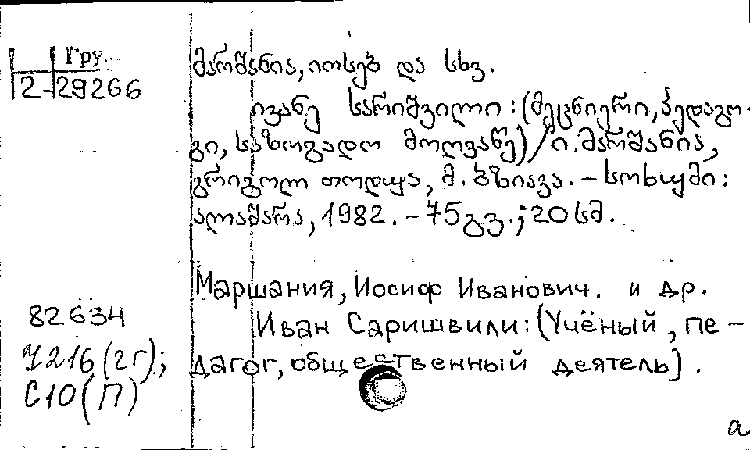 Гру.
2-29266
მარშანია, იოსებ და სხვ.
ივანე სარიშვილი: (მეცნიერი, პედაგო-
გი, საზოგადო მოღვაწე)/ი. მარშანია,
გრიგოლ თოდუა, მ. ბზიავა. – სოხუმი:
ალაშარა, 1982. – 75გვ.; 20 სმ.
Маршания, Иосиф Иванович. и др.
Иван Саришвили: (Учёный, пе-
дагог, общественный деятель).
82634
Ч216(2г);
С10(П)
а